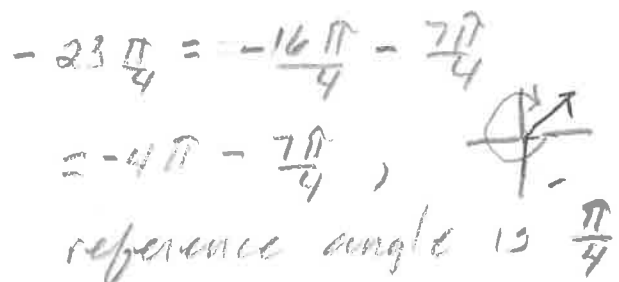 - 23 π/4 = -16π/4 - 7π/4
= -4π - 7π/4 ,
reference angle is π/4